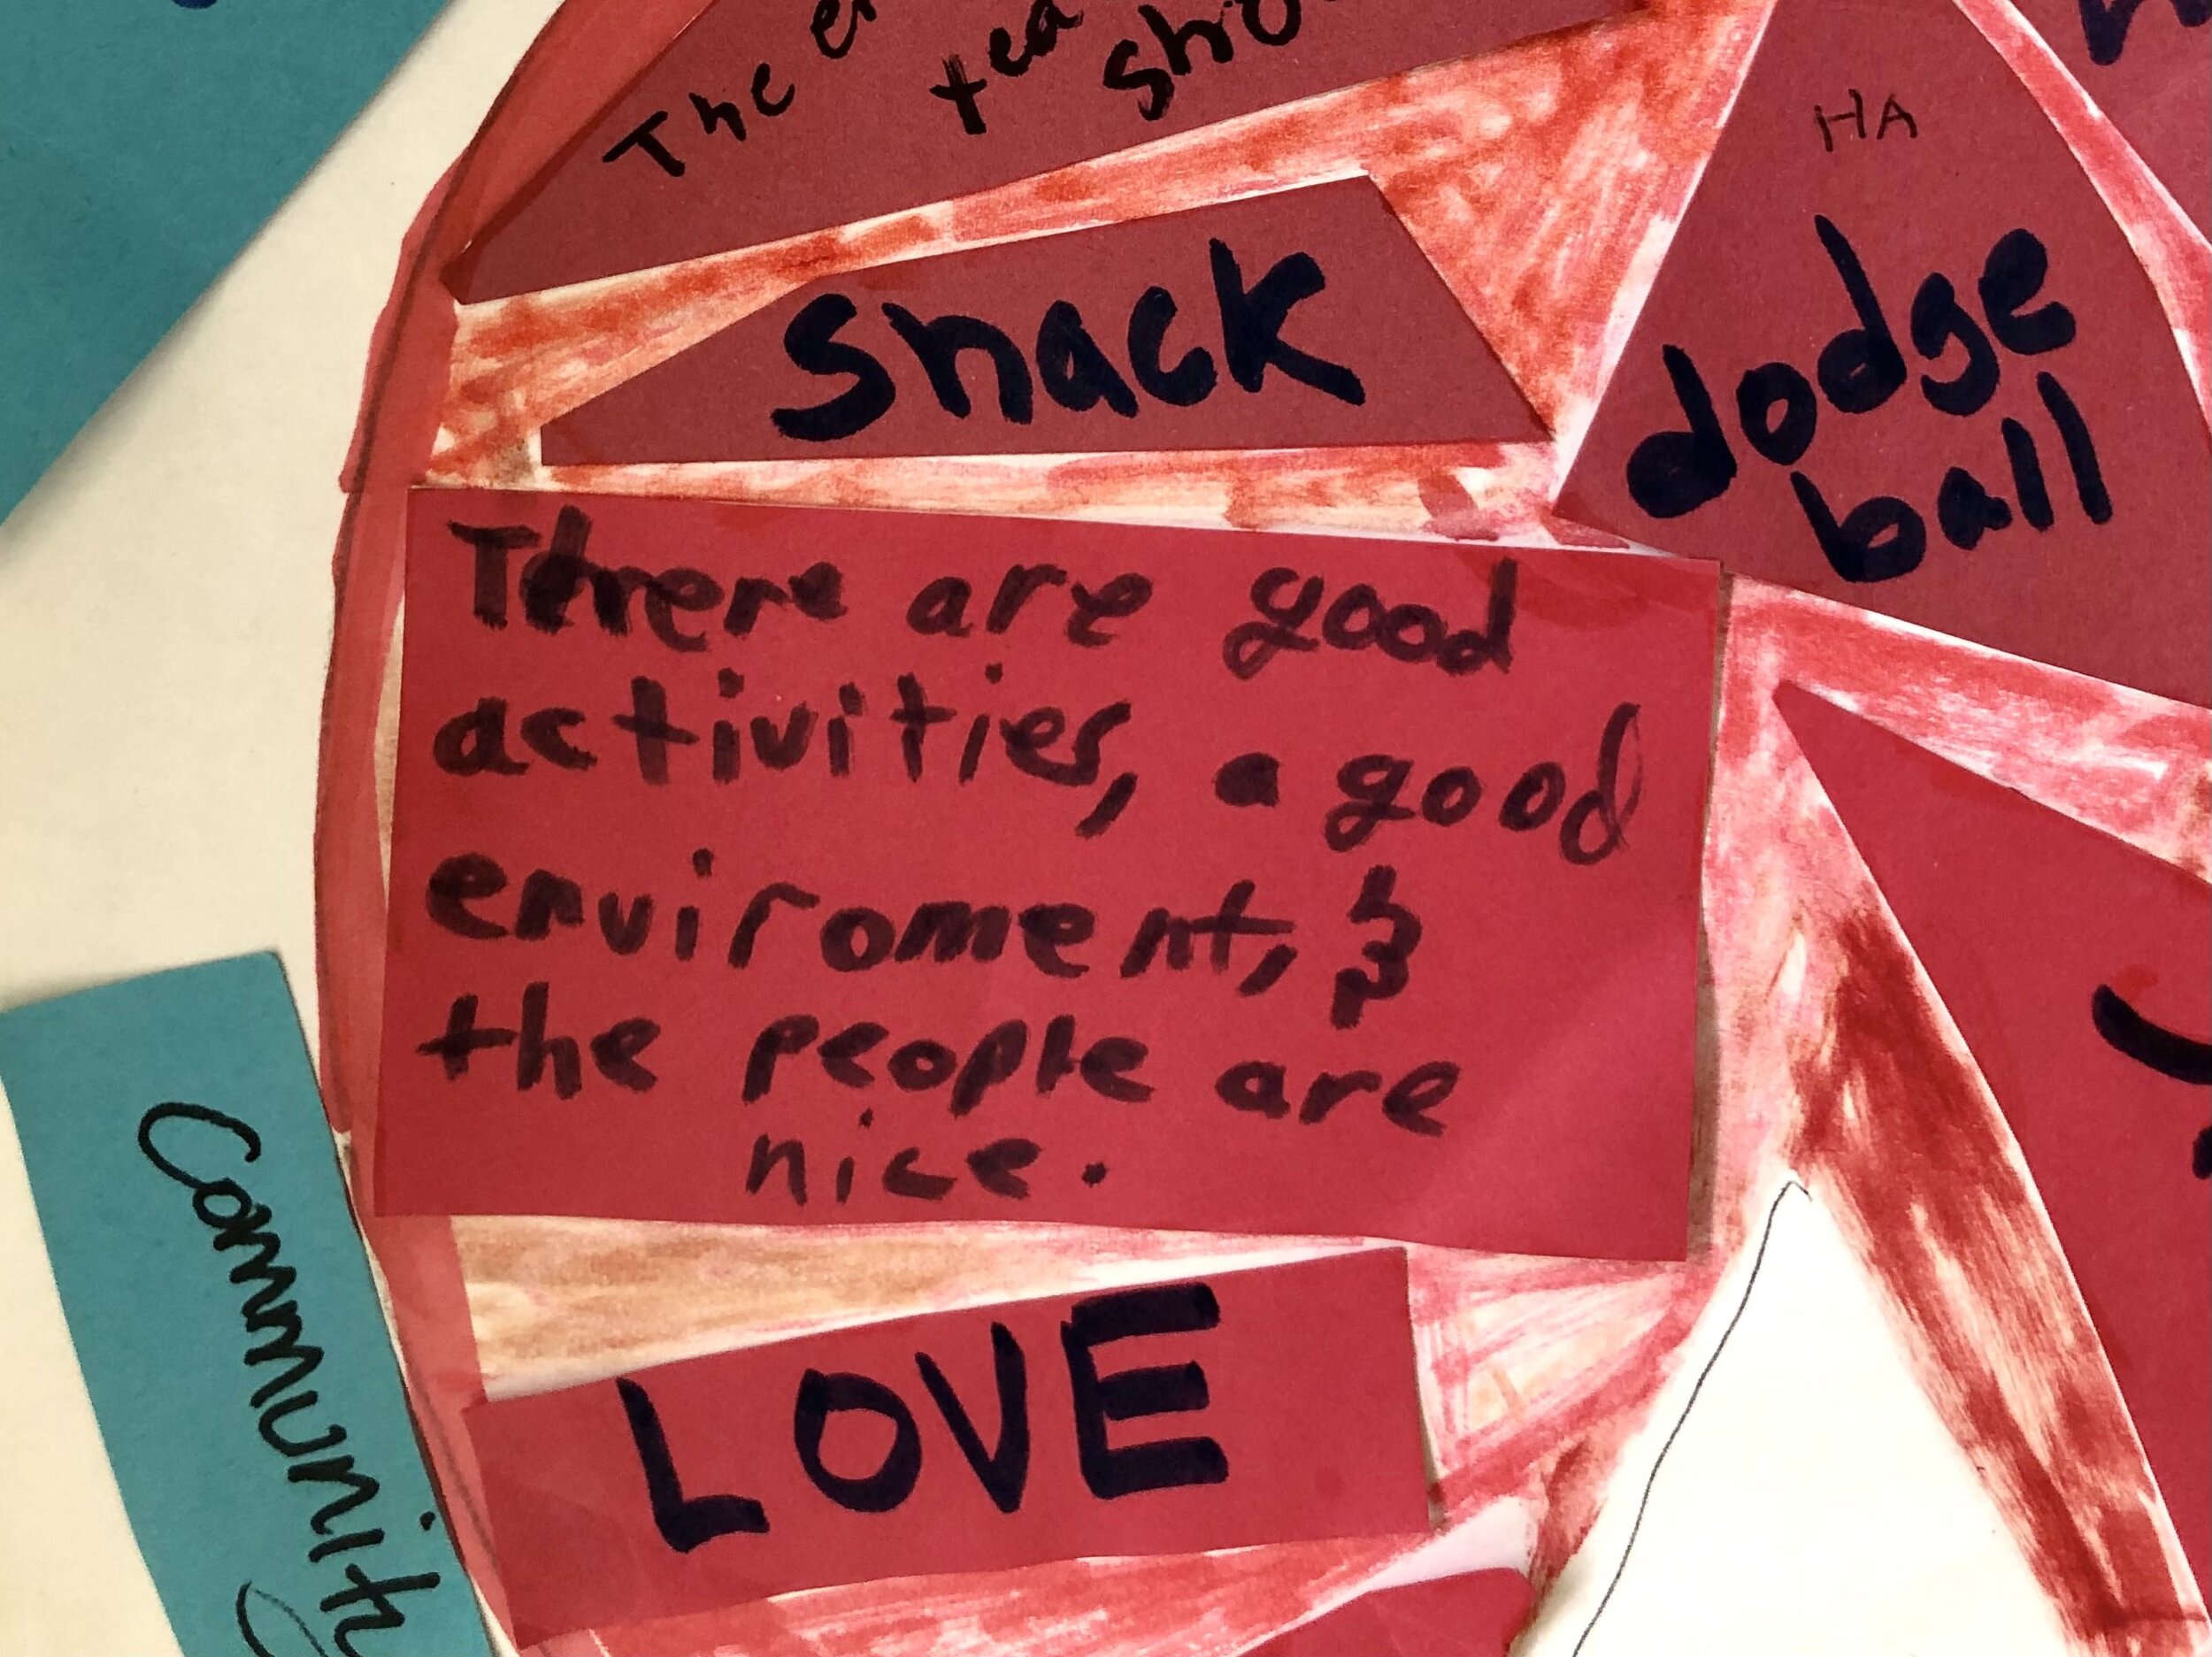 The
HA
snack
dodge
ball
There are good
activities, a good
enviroment, &
the people are
nice.
LOVE
Community